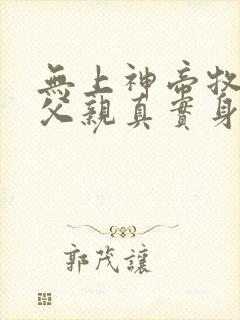 無上神帝牧
父親真實身
郭茂讓